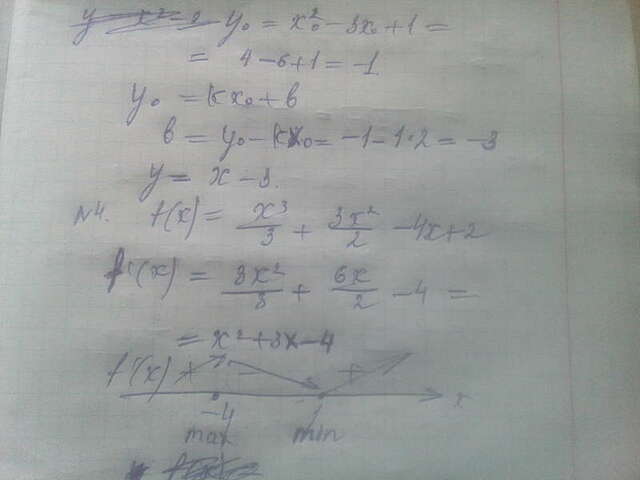 y₀ = x₀² - 3x₀ + 1 =
= 4 - 6 + 1 = -1
y₀ = kx₀ + b
b = y₀ - kx₀ = -1 - 1·2 = -3
y = x - 3.
№4. f(x) = x³/3 + 3x²/2 - 4x + 2
f'(x) = 3x²/3 + 6x/2 - 4 =
= x² + 3x - 4
f'(x) + - + x
-4 1
max min